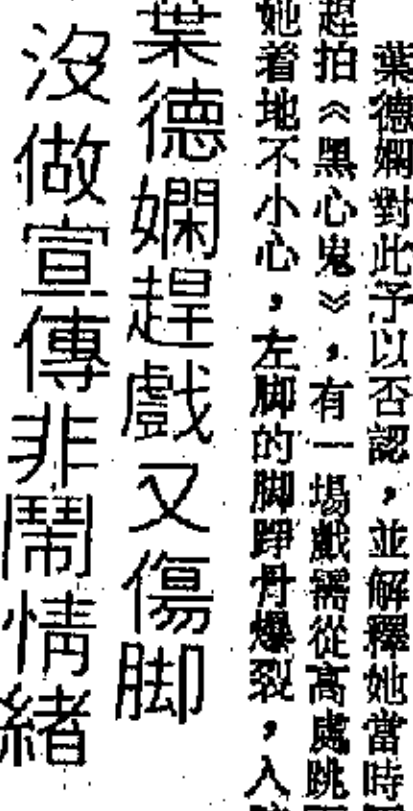 葉德嫻對此予以否認，並解釋她當時
趕拍《黑心鬼》，有一場戲需從高處跳
她着地不小心，左脚的脚踭骨爆裂，入
葉德嫻趕戲又傷脚
沒做宣傳非鬧情緒